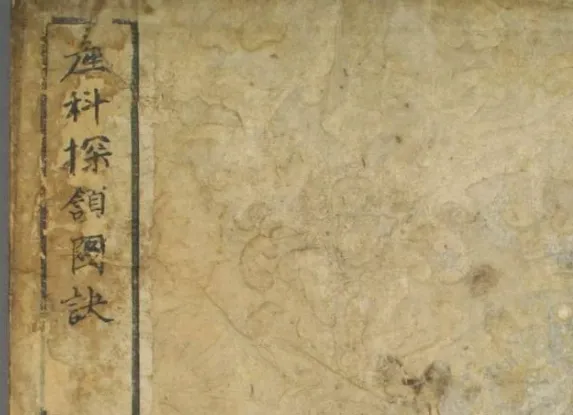 産科探頷図訣